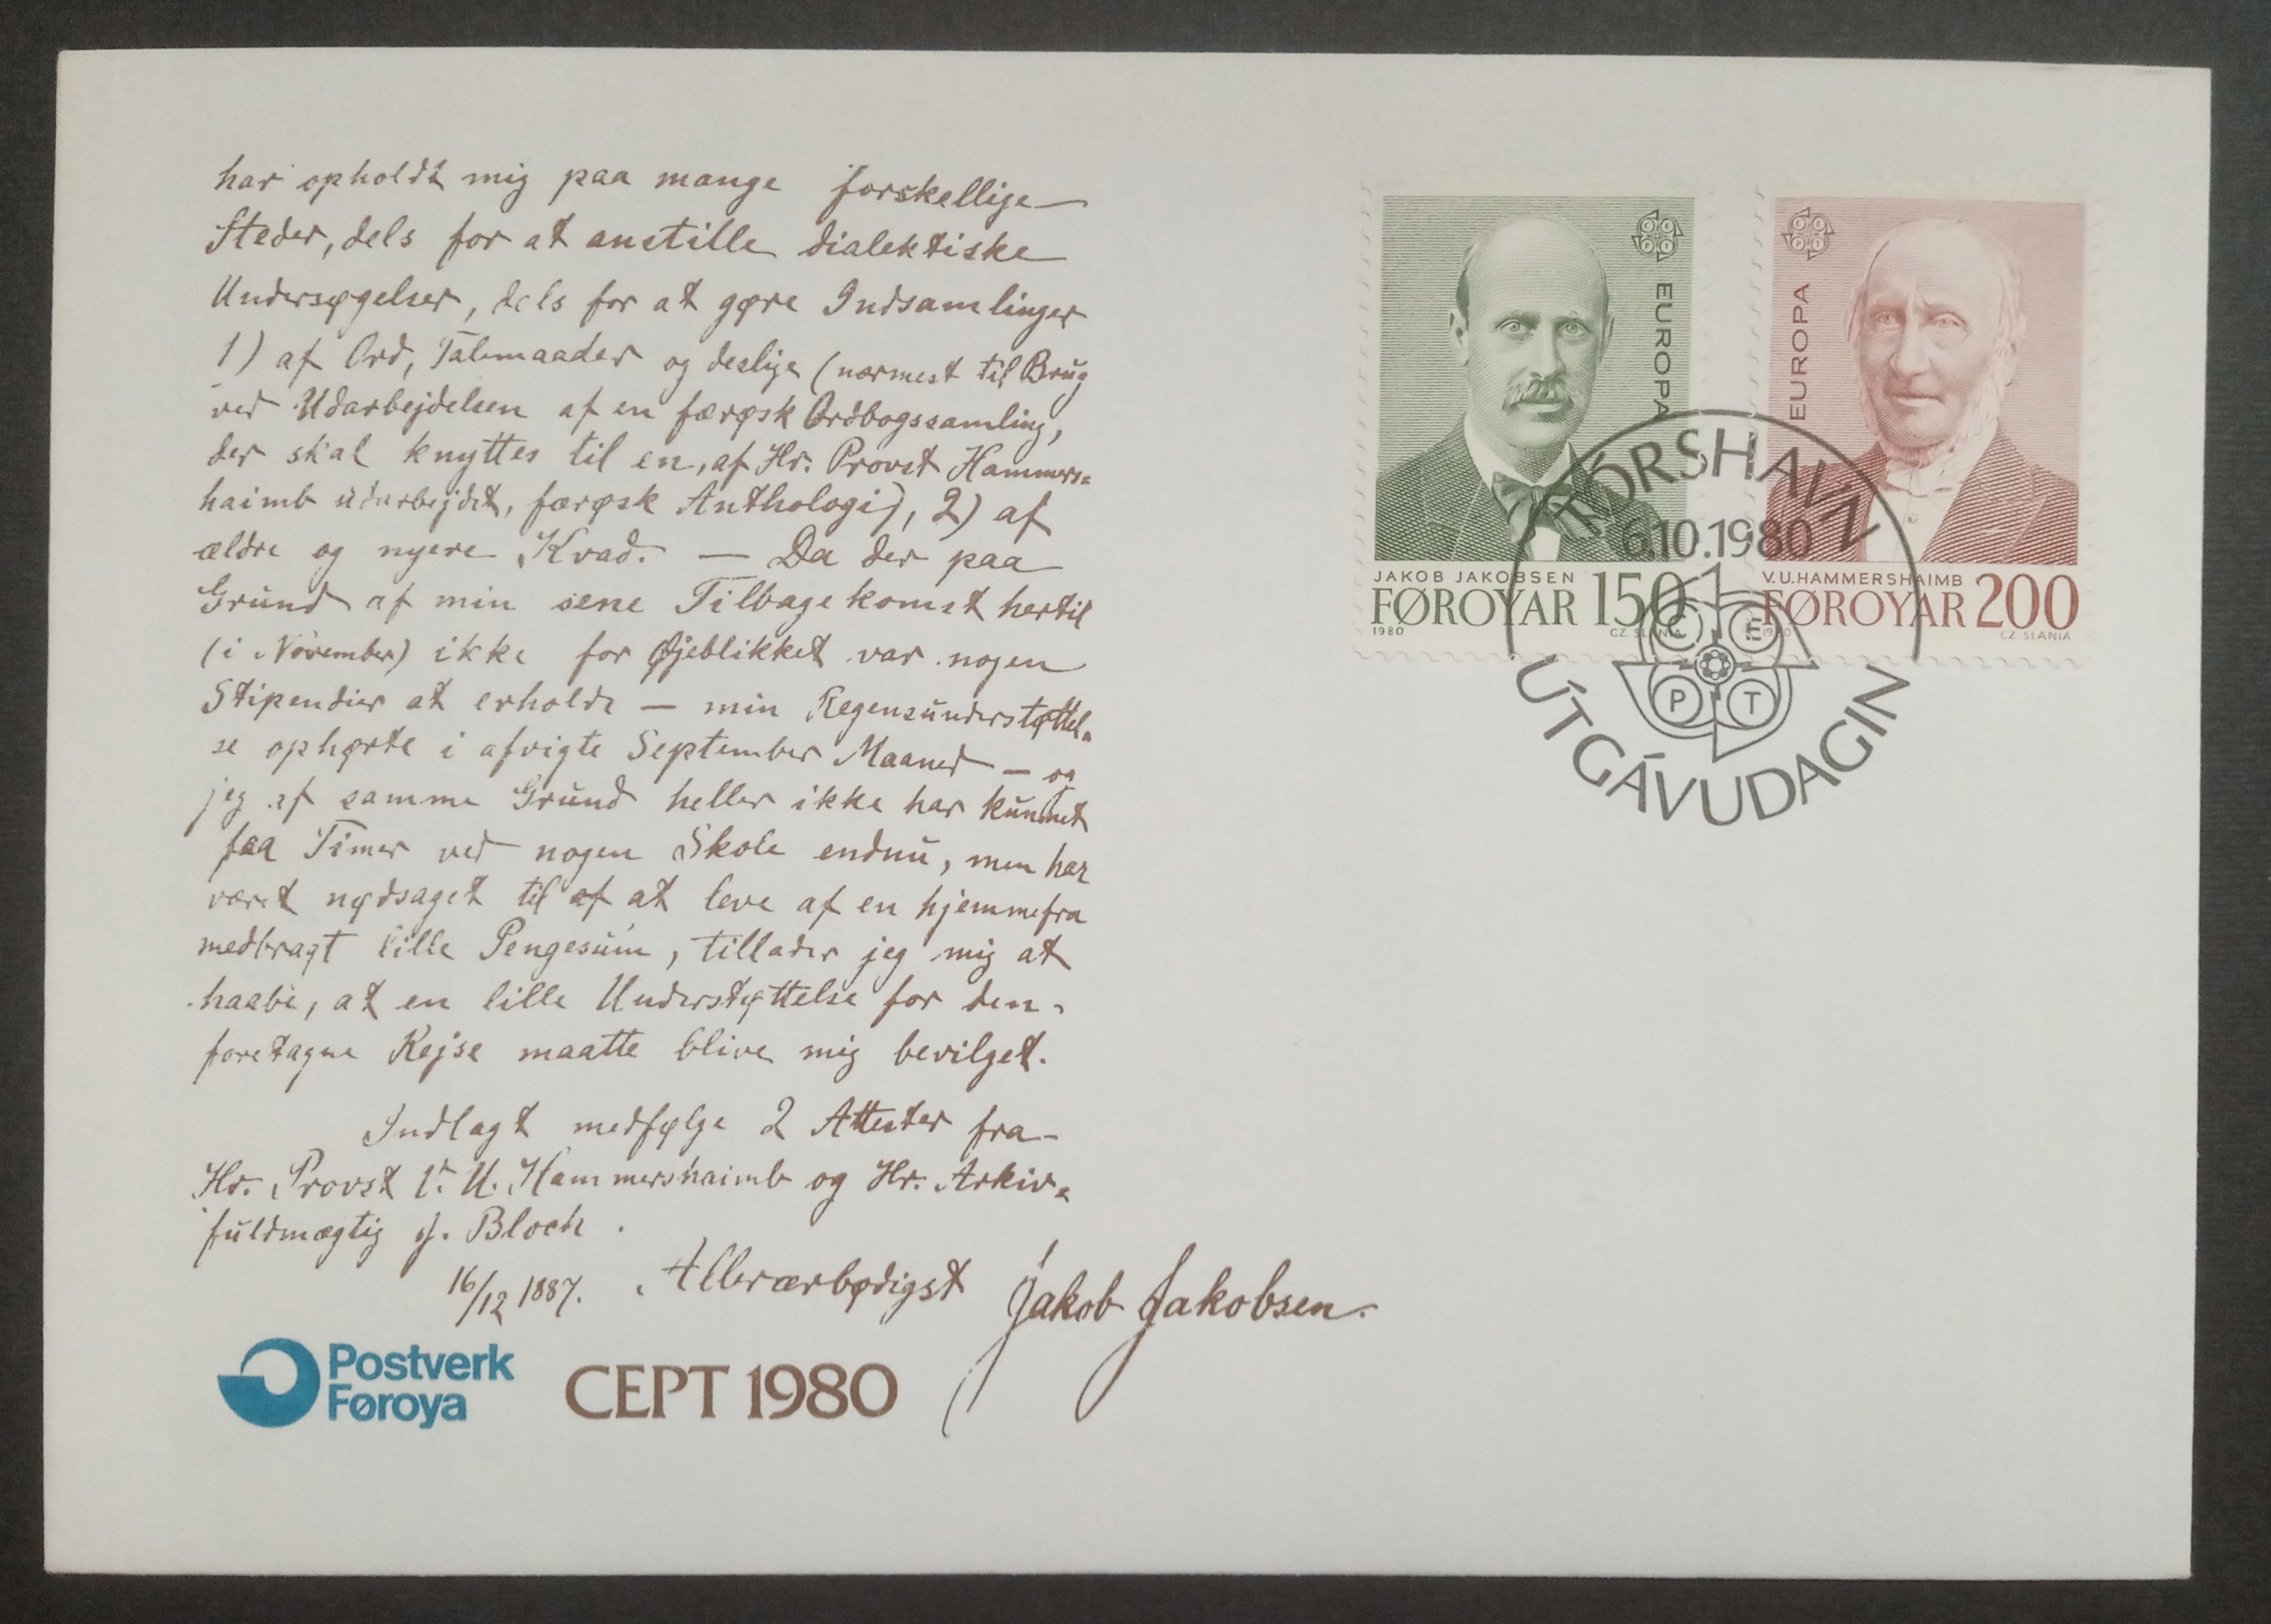 har opholdt mig paa mange forskellige
Steder, dels for at anstille dialektiske
Undersøgelser, dels for at gøre Indsamlinger
1) af Ord, Talemaader og deslige (nærmest til Brug
ved Udarbejdelsen af en færøsk Ordbogssamling,
der skal knyttes til en, af Hr. Provst Hammers=
haimb udarbejdet, færøsk Anthologi), 2) af
ældre og nyere Kvad. — Da der paa
Grund af min sene Tilbagekomst hertil
(i November) ikke for Øjeblikket var nogen
Stipendier at erholde — min Regensunderstøttel=
se ophørte i afvigte September Maaned — og
jeg af samme Grund heller ikke har kunnet
faa Timer ved nogen Skole endnu, men har
været nødsaget til af at leve af en hjemmefra
medbragt lille Pengesum, tillader jeg mig at
haabe, at en lille Understøttelse for den
foretagne Rejse maatte blive mig bevilget.
Indlagt medfølge 2 Attester fra
Hr. Provst V. U. Hammershaimb og Hr. Arkiv=
fuldmægtig J. Bloch.
16/12 1887. Allerærbødigst Jakob Jakobsen.
Postverk
Føroya
CEPT 1980
EUROPA
JAKOB JAKOBSEN
FØROYAR 150
1980 CZ. SLANIA
EUROPA
V.U. HAMMERSHAIMB
FØROYAR 200
1980 CZ. SLANIA
TÓRSHAVN
6.10.1980
C E P T
ÚTGÁVUDAGIN